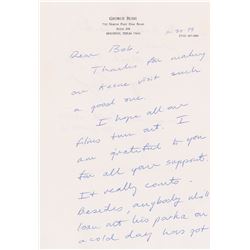 GEORGE BUSH
HOUSTON, TEXAS
Dear Bob,
Thanks for making
our Keene visit such
a good one.
I hope all our
films turn out. I
am grateful to you
for all your support.
It really counts.
Besides, anybody who'll
loan out his parka on
a cold day was got